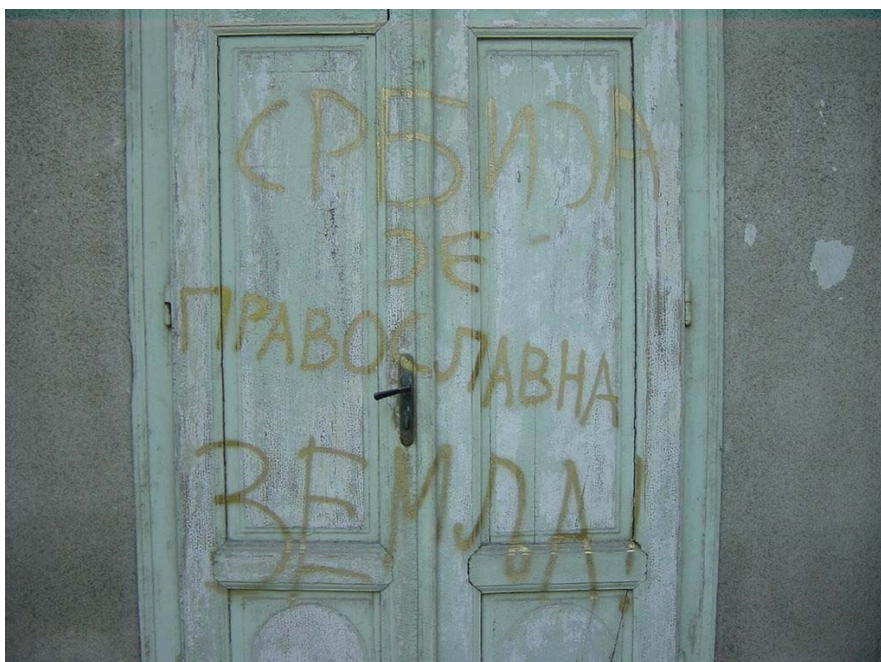 СРБИЈА
ЈЕ
ПРАВОСЛАВНА
ЗЕМЉА!